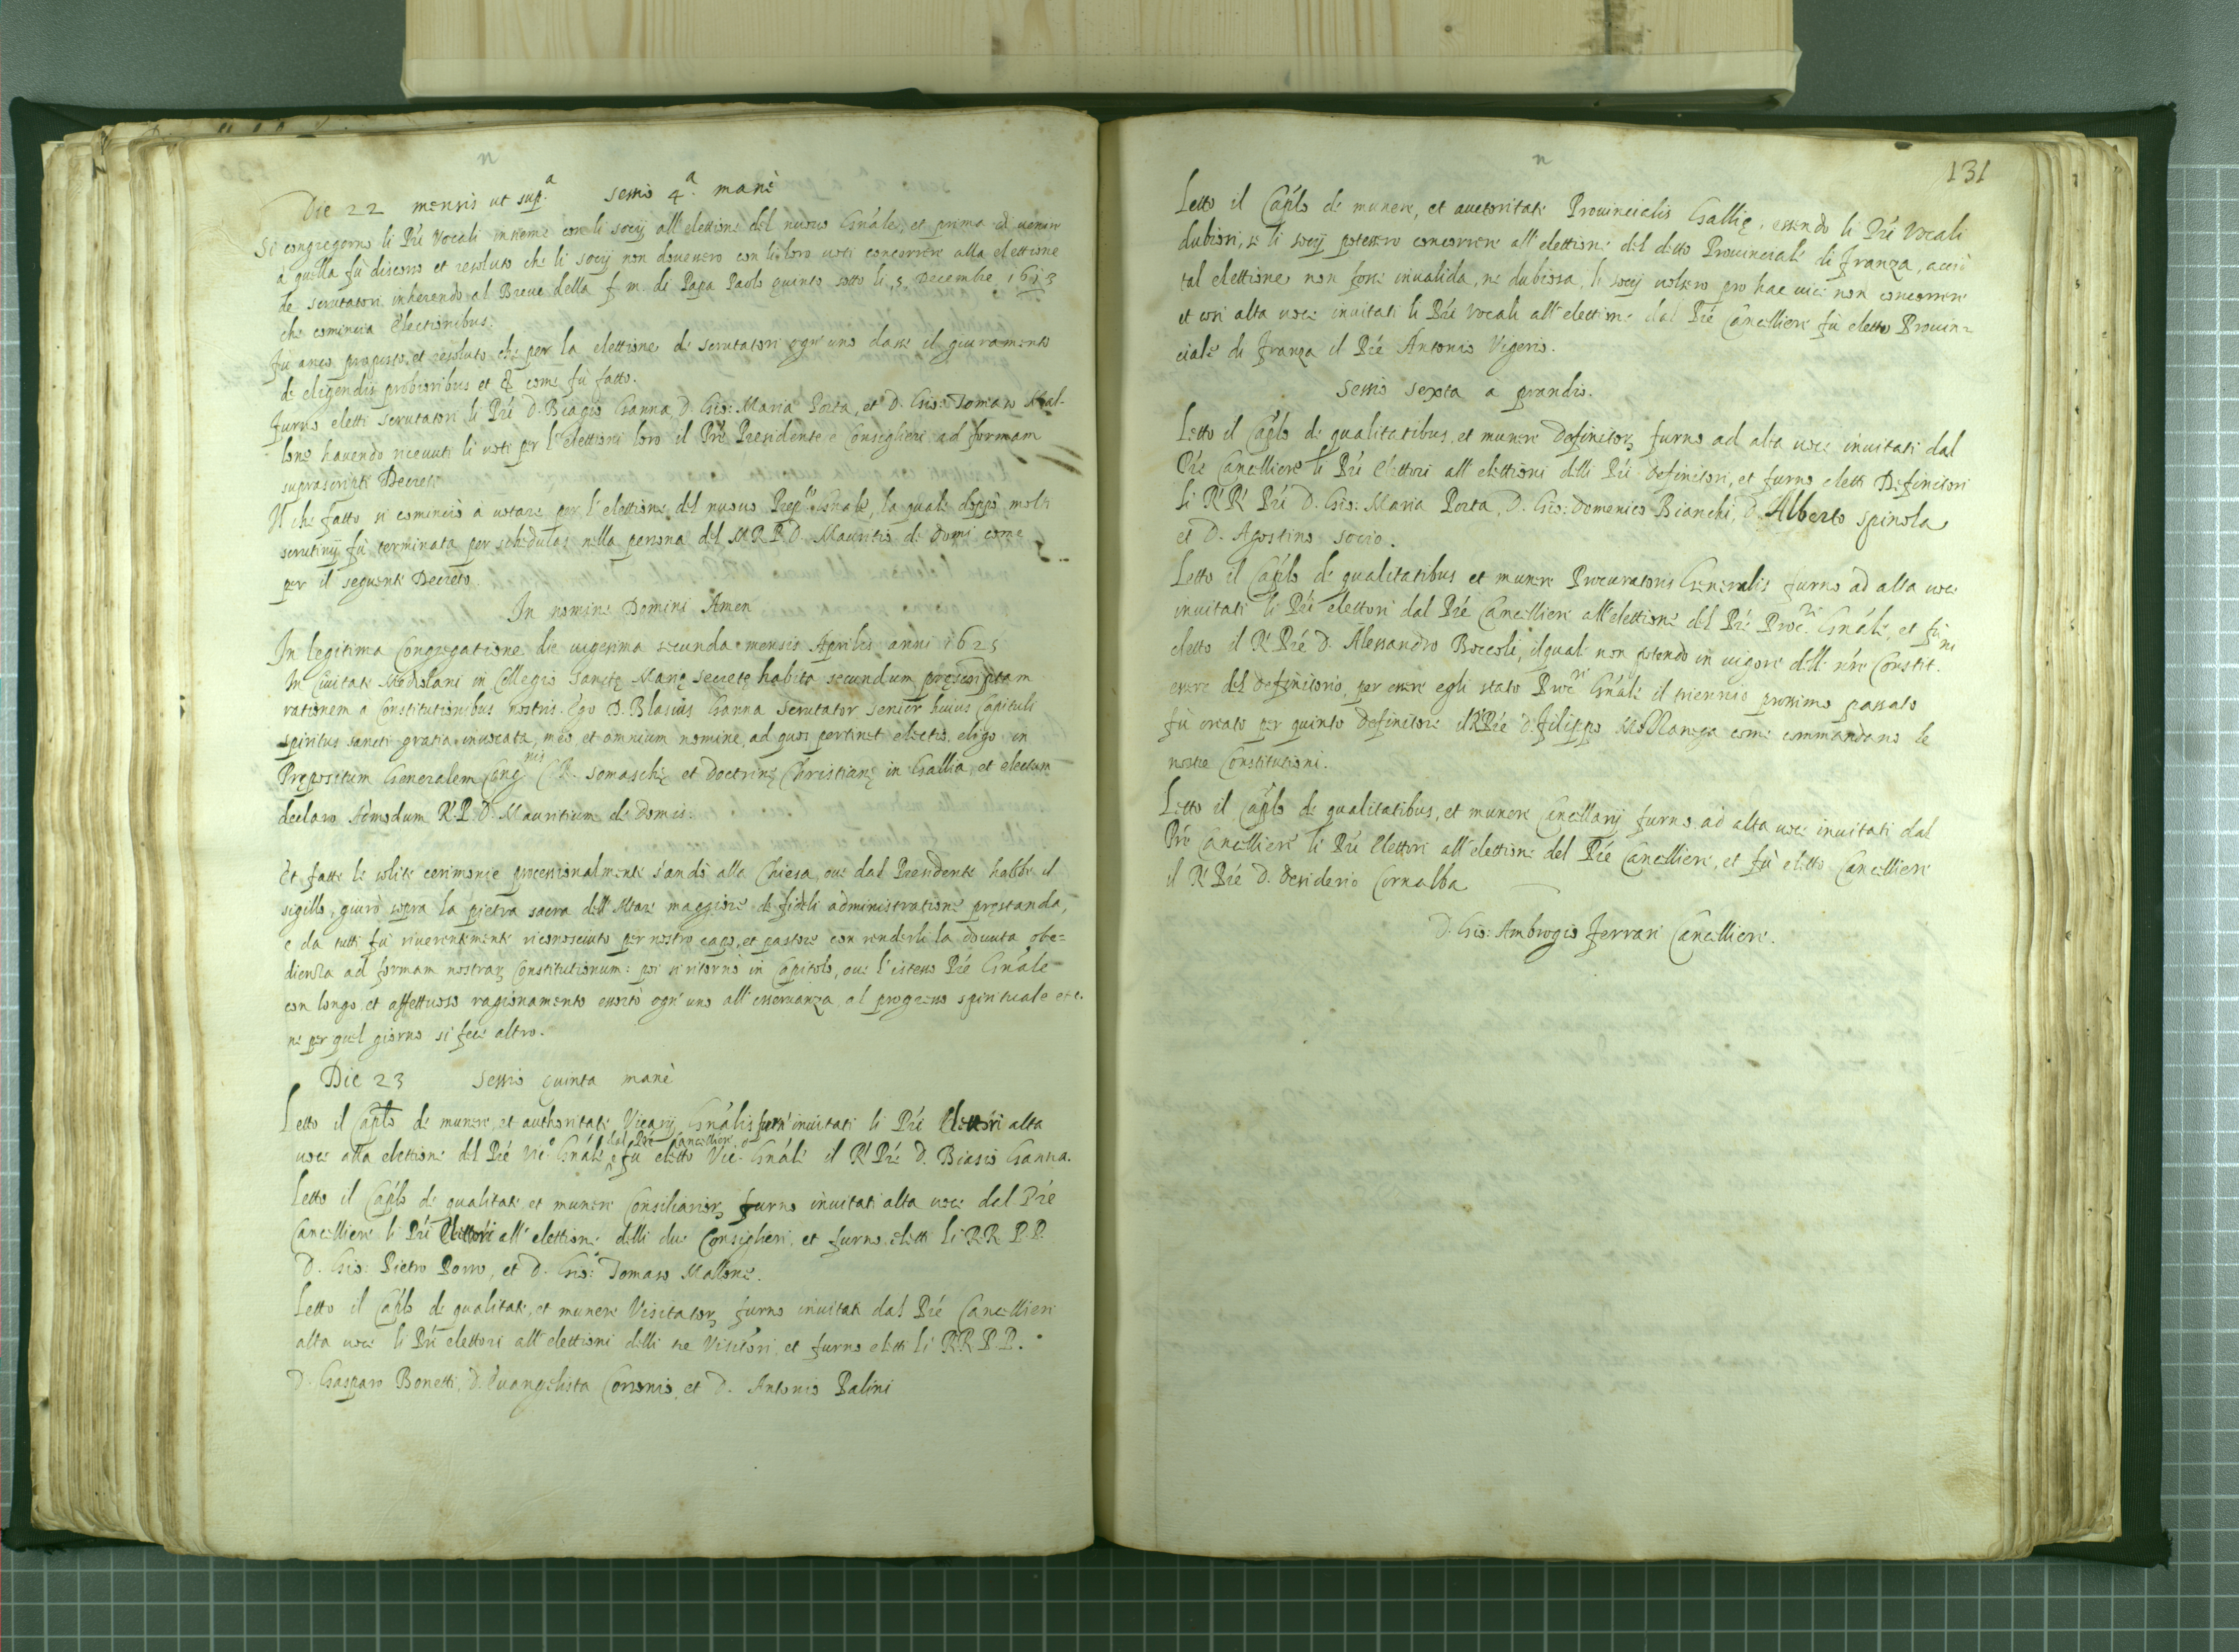 n
Die 22 mensis ut sup.a Sessio 4.a manè
Si congregorno li Pri Vocali insieme con li socij all'elettione del nuovo Gnale, et prima di venire
à quella fù discorso et resoluto che li socij non dovevero con li loro voti concorrere alla elettione
de scrutatori inherendo al Breve della f. m. di Papa Paolo quinto sotto li 5 Decembre 1613
che comincia Electionibus.
Fù anco proposto, et resoluto che per la elettione de scrutatori ogn'uno dasse il giuramento
de eligendis probioribus et &c come fù fatto.
Furno eletti scrutatori li Pri D. Biagio Ganna D. Gio: Maria Porta, et D. Gio: Tomaso Mal-
lone havendo ricevuti li voti per l'elettioni loro il Pre Presidente e Consiglieri ad formam
suprascripti Decreti
Il che fatto si cominciò à votare per l'elettione del nuovo Prep.to Gnale, la quale doppò molti
scrutinij fù terminata per schedulas nella persona del M.R.P.D. Mauritio de Domi come
per il seguente Decreto.
In nomine Domini Amen
In legitima Congregatione die vigesima secunda mensis Aprilis anni 1625
In Civitate Mediolani in Collegio Sanctę Marię Secretę habita secundum pręscriptam
rationem a Constitutionibus nostris. Ego D. Blasius Ganna Scrutator Senior huius Capituli
spiritus sancti gratia invocata, meo, et omnium nomine, ad quos pertinet electio, eligo in
Prępositum Generalem Congnis CR. Somaschę et Doctrinę Christianę in Gallia, et electum
declaro Admodum R.P.D. Mauritium de Domis.
Et fatte le solite cerimonie processionalmente s'andò alla Chiesa, ove dal Presidente habbe il
sigillo, giurò sopra la pietra sacra dell'Altare maggiore de fideli administratione pręstanda,
e da tutti fù riverentemente riconosciuto per nostro capo, et pastore con renderli la dovuta obe=
dienza ad formam nostrarꝫ Constitutionum: poi si ritornò in Capitolo, ove l'istesso Pré Gnále
con longo, et affettuoso ragionamento essortò ogn'uno all'osservanza, al progresso spirituale etc.
ne per quel giorno si fece altro.
Die 23 Sessio quinta manè
Letto il Caplo de munere, et authoritate Vicarij Gnális furn' invitati li Pri Elettori alta
dal Pre Cancelliere
voce alla elettione del Pré Vic.o Gnále e fù eletto Vic.o Gnále il R. Pré D. Biasio Ganna.
Letto il Caplo de qualitate, et munere Consiliariorꝫ furno invitati alta voce dal Pré
Cancelliere li Pri Elettori all'elettione delli due Consiglieri, et furno eletti li RR. PP.
D. Gio: Pietro Porro, et D. Gio: Tomaso Mallone.
Letto il Caplo de qualitate, et munere Visitatorꝫ furno invitati dal Pré Cancelliere
alta voce li Pri elettori all'elettioni delli tre Visitori, et furno eletti li RR.PP.
D. Gasparo Bonetti, D. Evangelista Corsonio, et D. Antonio Palini
n
131
Letto il Caplo de munere, et auctoritate Provincialis Gallię, essendo li Pri Vocali
dubiosi, se li socij potessero concorrere all'elettione del detto Provinciale di Franza, acciò
tal elettione non fosse invalida, ne dubiosa, li socij volsero pro hac vice non concorrere
et così alta voce invitati li Pri Vocali all'elettione dal Pré Cancelliere fù eletto Provin=
ciale di Franza il Pré Antonio Vigerio.
Sessio Sexta à prandio.
Letto il Caplo de qualitatibus, et munere Definitorꝫ furno ad alta voce invitati dal
Pré Cancelliere li Pri Elettori all'elettioni delli Pri Definitori, et furno eletti Definitori
li RR Pri D. Gio: Maria Porta, D. Gio: Domenico Bianchi, D. Alberto Spinola
et D. Agostino Socio.
Letto il Caplo de qualitatibus et munere Procuratoris Generalis furno ad alta voce
invitati li Pri elettori dal Pré Cancelliere all'elettione del Pré Proc.re Gnále, et fù
eletto il R Pré D. Alessandro Boccoli, il qual non potendo in vigore delle nre Constit.ni
essere del definitorio, per esser egli stato Proc.re Gnále il triennio prossimo passato
fù creato per quinto definitore il R Pré D. Filippo Mollanega come commandano le
nostre Constitutioni.
Letto il Caplo de qualitatibus, et munere Cancellarij furno ad alta voce invitati dal
Pré Cancelliere li Pri Elettori all'elettione del Pré Cancelliere, et fù eletto Cancelliere
il R Pré D. Desiderio Cornalba
D. Gio: Ambrogio Ferrari Cancelliere.